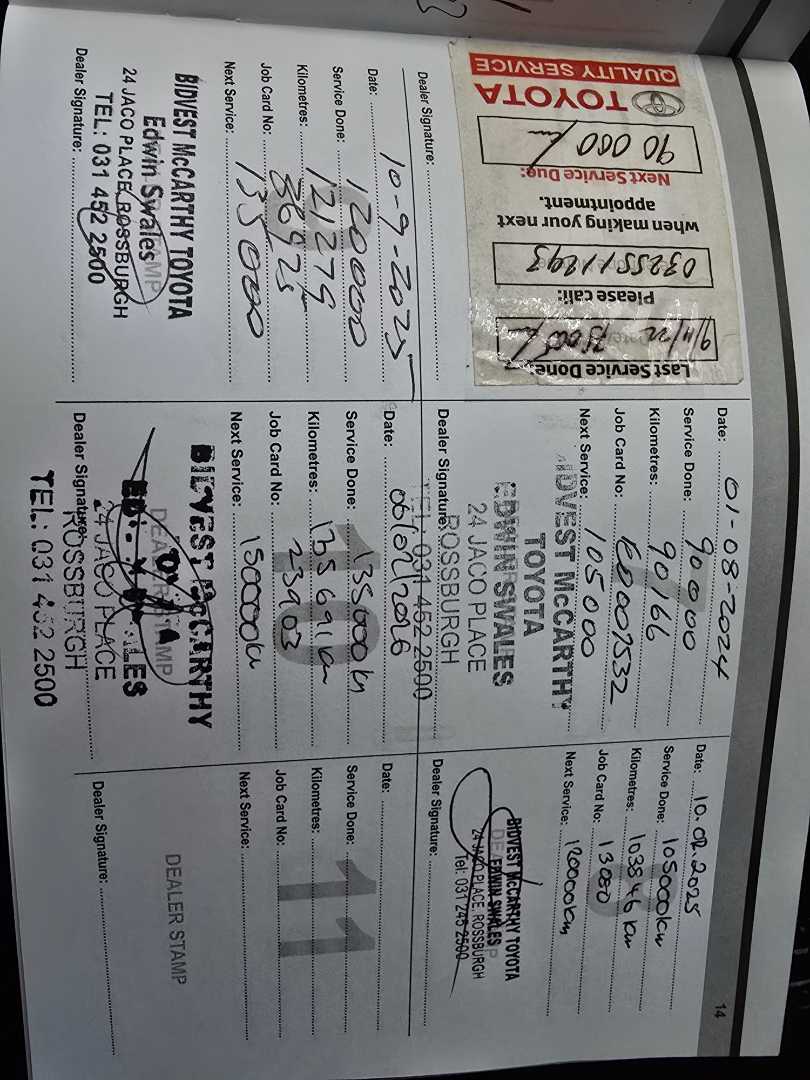 14
TOYOTA
QUALITY SERVICE
Last Service Done:
9/11/22 75 000 km
Please call:
0325511293
when making your next
appointment.
Next Service Due:
90 000 km
Dealer Signature:
7
Date: 01-08-2024
Service Done: 90000
Kilometres: 90166
Job Card No:
Next Service: 105000
McCARTHY
TOYOTA
EDWIN SWALES
24 JACO PLACE
ROSSBURGH
TEL: 031 452 2500
Dealer Signature:
Date: 10.02.2025
Service Done: 105000km
Kilometres: 103846 km
Job Card No: 13080
Next Service: 120000km
BIDVEST McCARTHY TOYOTA
EDWIN SWALES
24 JACO PLACE, ROSSBURGH
Tel: 031 245 2500
Dealer Signature:
Date: 10-9-2025
Service Done: 120000
Kilometres: 121279 km
Job Card No: 36925
Next Service: 135000
BIDVEST McCARTHY TOYOTA
Edwin Swales
24 JACO PLACE, ROSSBURGH
TEL: 031 452 2500
Dealer Signature:
10
Date: 06/02/2026
Service Done: 135000km
Kilometres: 135691km
Job Card No: 23903
Next Service: 150000km
McCARTHY
24 JACO PLACE
ROSSBURGH
TEL: 031 452 2500
Dealer Signature:
11
Date:
Service Done:
Kilometres:
Job Card No:
Next Service:
DEALER STAMP
Dealer Signature: